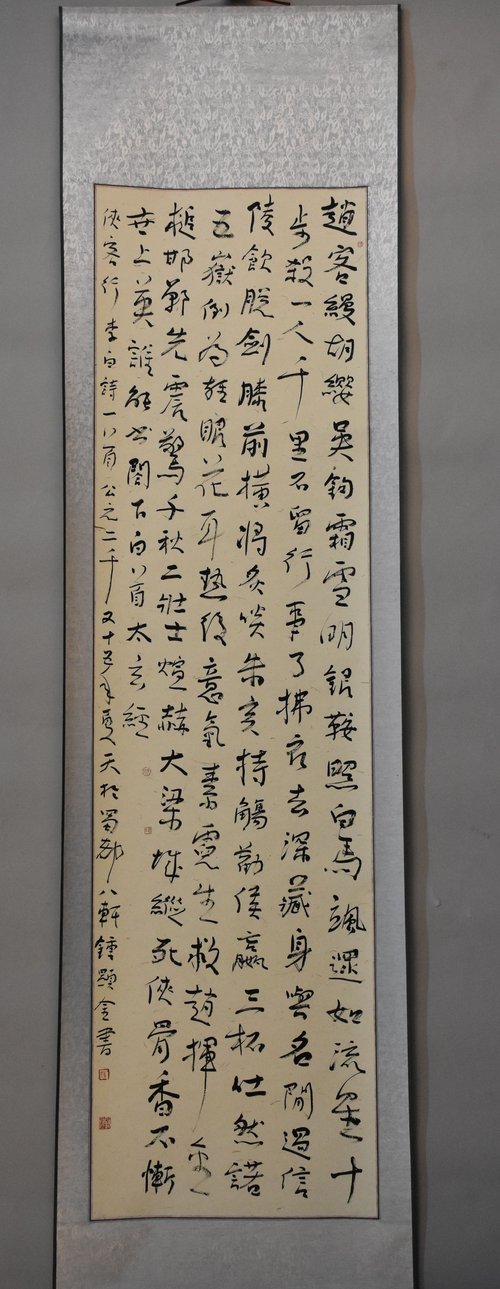 趙客縵胡纓吳鉤霜雪明銀鞍照白馬颯遝如流星十
步殺一人千里不留行事了拂衣去深藏身與名閒過信
陵飲脫劍膝前橫將炙啖朱亥持觴勸侯嬴三杯吐然諾
五嶽倒為輕眼花耳熱後意氣素霓生救趙揮金
槌邯鄲先震驚千秋二壯士煊赫大梁城縱死俠骨香不慚
世上英誰能書閣下白首太玄經
俠客行 李白詩一首 公元二千又十五年夏天於蜀都八軒鍾顯書